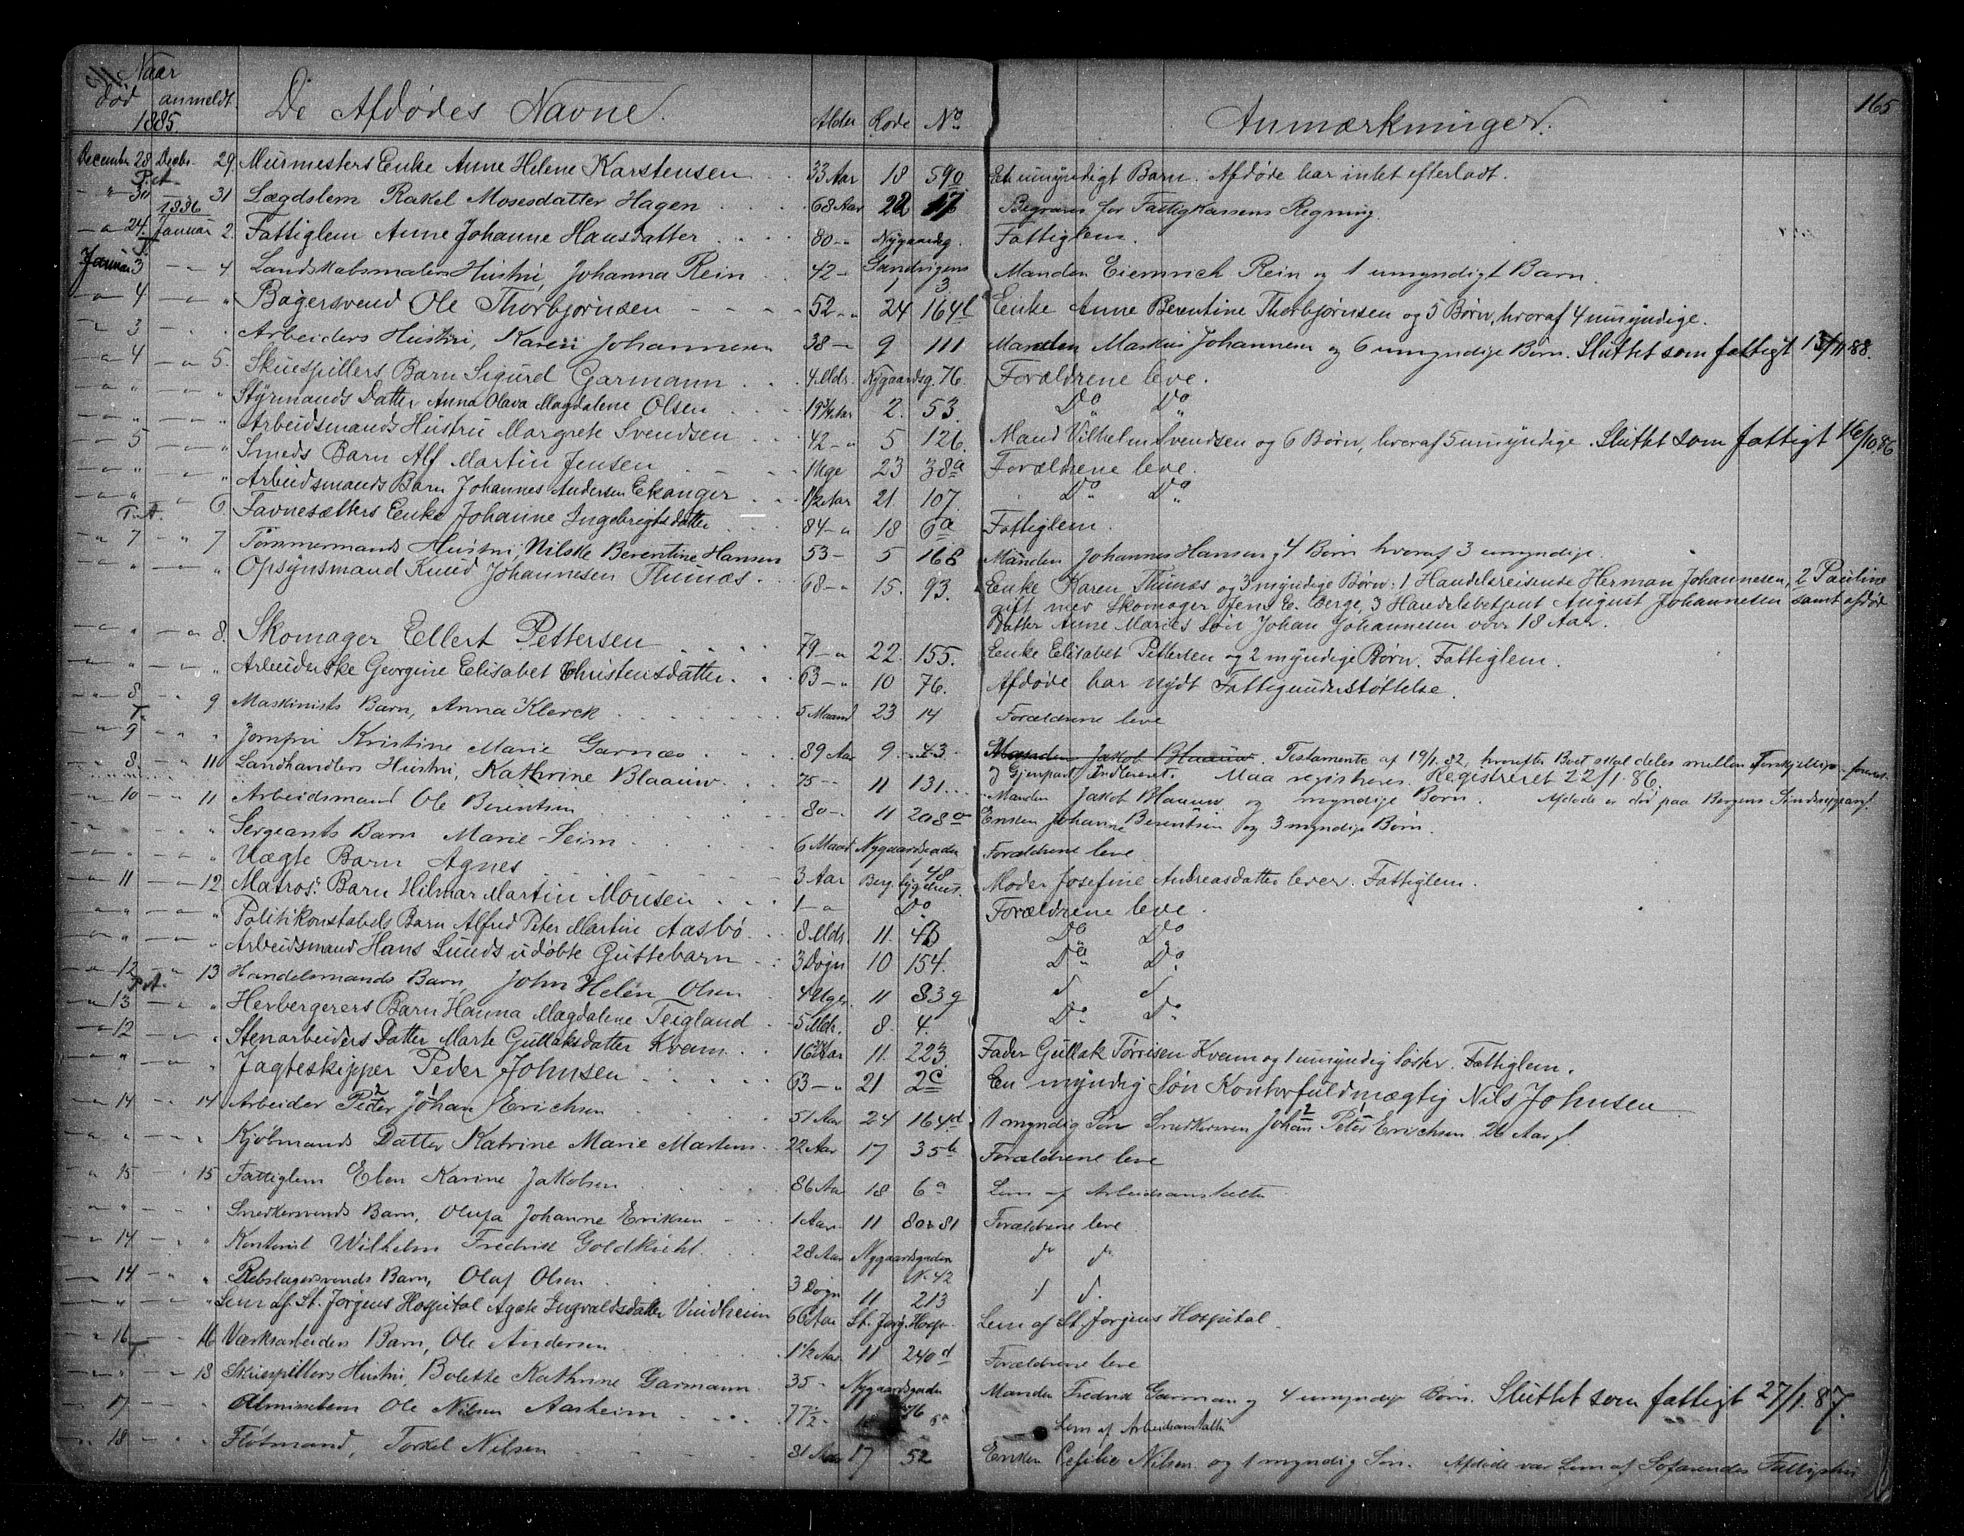 Naar
død anmeldt De Afdødes Navne. Alder Rode No Anmærkninger. 165
1885
December 28 Decbr. 29 Murmesters Enke Anne Helene Karstensen 33 Aar 18 590 Et umyndigt Barn. Afdøde har intet efterladt.
" 30 31 Lægdslem Rakel Mosesdatter Hagen 68 Aar 22 17 Begraves for Fattigkassens Regning.
1886
" 24 Januar 2. Fattiglem Anne Johanne Hansdatter 80 " Nygaardsg. Fattiglem.
Januar 3 4 Landskabsmalers Hustru, Johanna Rein 42 Sandvigens 3 Manden Eiemrich Rein og 1 umyndigt Barn.
" 4 " Bagersvend Ole Thorbjørnsen 52 " 24 164 Enke Anne Berentine Thorbjørnsen og 5 Børn, hvoraf 4 umyndige.
" 3 " Arbeiders Hustru, Karen Johannesen 38 9 111 Manden Markus Johannesen og 6 umyndige Børn. Sluttet som fattigt 88.
" 4 5. Skuespillers Barn Sigurd Garmann 4 Mdr. Nygaardsg. 76. Forældrene leve.
" " Styrmands Datter Anna Olava Magdalene Olsen 19 Aar 2. 53. Do Do
" " Arbeidsmands Hustru Margrete Svendsen 42 " 5 126. Mand Vilhelm Svendsen og 6 Børn, hvoraf 5 umyndige. Sluttet som fattigt 16/10.86
" 5 " Smeds Barn Alf Martin Jensen 1 Uge 23 38a Forældrene leve.
" " Arbeidsmands Barn Johannes Andersen Ekanger 1½ Aar 21 107. Do Do
" " 6 Favnesætters Enke Johanne Ingebrigtsdatter 84 " 18 6a Fattiglem.
" 7 " 7 Tømmermands Hustru, Nilske Berentine Hansen 53 5 168 Manden Johannes Hansen og 4 Børn hvoraf 3 umyndige.
" " Opsynsmand Knud Johannesen Thunæs 68 " 15. 93. Enke Karen Thunæs og 3 myndige Børn: 1 Handelsreisende Herman Johannesen, 2 Pauline
gift med Skomager Jens E. Berge, 3 Handelsbetjent August Johannesen samt afdøde
Datter Anne Maries Søn Johan Johannesen over 18 Aar.
" " 8. Skomager Ellert Pettersen 79 " 22. 155. Enke Elisabet Pettersen og 2 myndige Børn. Fattiglem.
" " Arbeiderske Georgine Elisabet Christensdatter 63 " 10 76. Afdøde har nydt Fattigunderstøttelse.
" 8 9 Maskinists Barn, Anna Klerck 5 Maaned 23 14 Forældrene leve
" 9 " Jomfru Kristine Marie Garnæs 89 Aar 9 43 Manden Jakob Blaauw. Testamente af 19/1.82, hvorefter Boet skal deles mellem
og Gjenpart Indleveret. Maa registreres. Registreret 22/1.86.
" 8. 11 Landhandlers Hustru, Kathrine Blaauw 75 11 131. Manden Jakob Blaauw og myndige Børn. Afdøde er død paa Bergens Sindssygeasyl.
" 10 11 Arbeidsmand Ole Berentsen 80 11 208a Enken Johanne Berentsen og 3 myndige Børn.
" " Sergeants Barn Marie Seim 6 Maaned Nygaardsgaden Forældrene leve
" " Uægte Barn Agnes 3 Aar Berg. Sygehus. Moder Josefine Andreasdatter lever. Fattiglem.
" 11 12. Matros: Barn Hilmar Martin Monsen 1 " Do Forældrene leve.
" " Politikonstabels Barn Alfred Peter Martin Aasbø 8 Mdr. 11. 43 Do Do
" " Arbeidsmand Hans Lunds udøbte Guttebarn 3 Døgn 10 154. Do Do.
" 12 13 Handelsmands Barn, John Helén Olsen 4 Uger. 11 83g d d
" 13 " Herbergerers Barn Hanna Magdalene Teigland 5 Mdr. 8. 4. Do Do
" 12 " Stenarbeiders Datter Marte Gullaksdatter Kvam 16 Aar 11. 223. Fader Gullak Tørrisen Kvam og 1 umyndig Søster. Fattiglem.
" " Jagteskipper Peder Johnsen 63 " 21 2c En myndig Søn Kontorfuldmægtig Nils Johnsen
" 14 14 Arbeider Peder Johan Erichsen 51 Aar 24 164d 1 myndig Søn Snedkersven Johan Peter Erichsen 26 Aar gl.
" " Kjøbmands Datter Katrine Marie Martens 22 Aar 17 35b Forældrene leve
" 15 15 Fattiglem Elen Karine Jakobsen 86 Aar 18 6a Lem af Arbeidsanstalten
" " Snedkersvends Barn, Olufa Johanne Eriksen 1 Aar 11 80 & 81 Forældrene leve
" 14 " Kontorist Wilhelm Fredrik Goldkuhl 28 Aar Nygaardsgaden No 42 do do
" 14 " Rebslagersvends Barn, Olaf Olsen 3 Døgn 11 213 d d.
" " Lem af St. Jørgens Hospital Agete Ingvaldsdatter Vindheim 66 Aar St. Jørg. Hosp. Lem af St. Jørgens Hospital.
" 16 16 Værksarbeiders Barn, Ole Andersen 1½ Aar 11 240d Forældrene leve
18 Skuespillers Hustru, Bolette Kathrine Garmann 35 Nygaardsgaden 76 Manden Fredrik Garman og 4 umyndige Børn. Sluttet som fattigt 27/1.87.
" 17 " Almisselem Ole Nilsen Aasheim 77½ 6a Lem af Arbeidsanstalten
" 18 " Fløtmand, Torkel Nilsen 81 Aar 17 52 Enken Cesilie Nilsen og 1 myndig Søn. Afdøde var Lem af Søfarendes Fattighus